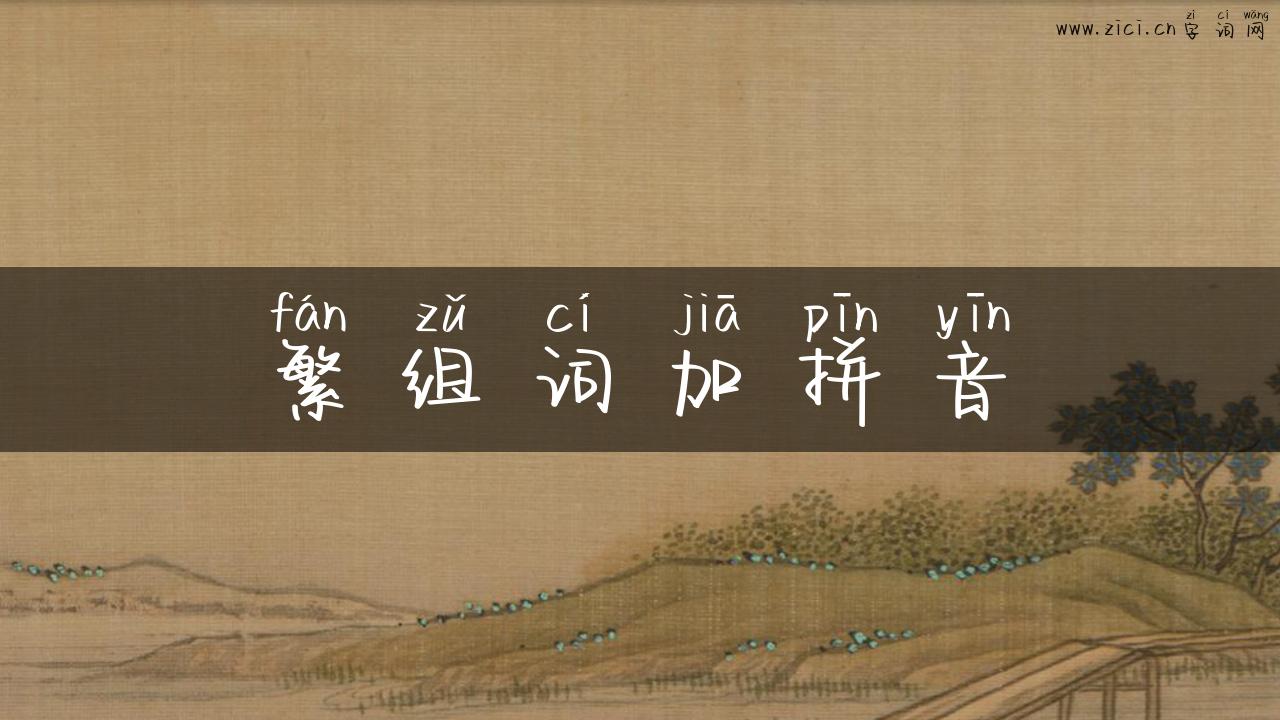 zì cí wǎng
www.zici.cn字词网
fán zǔ cí jiā pīn yīn
繁组词加拼音